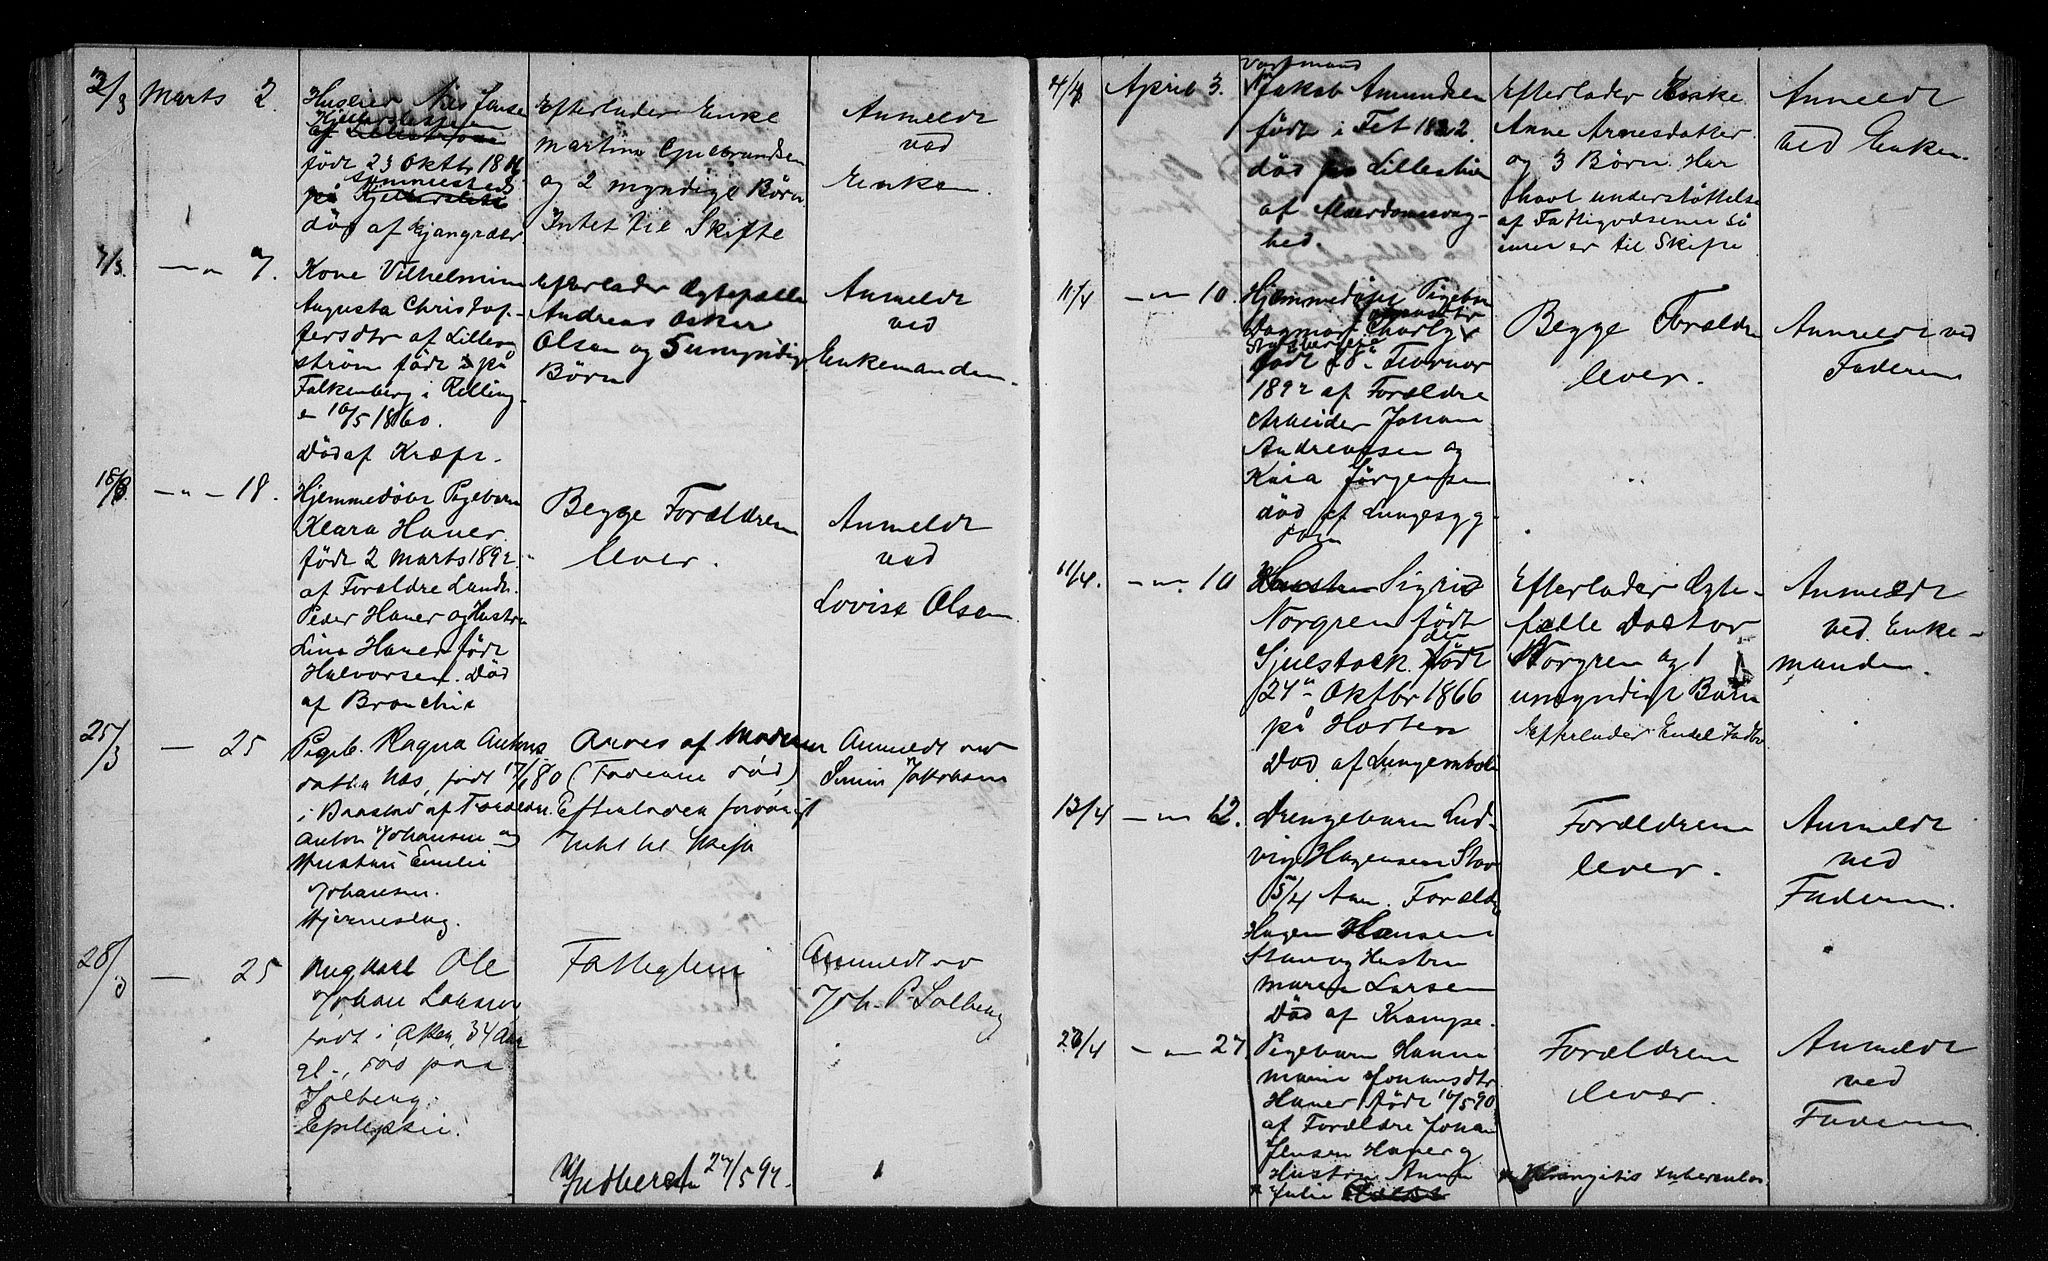 2/3 Marts 2.
Huslied Nils Jansen
Kjellerslesjen
af Lillestrøm
født 23 Oktbr 1816
sammested
på
død af Gjangræn
Efterlader Enke
Martine Gulbrandsen
og 2 myndige Børn.
Intet til Skifte
Anmeldt
ved
Enken.
7/3. — " 7.
Kone Vilhelmine
Augusta Christof-
fersdtr af Lille-
strøm født på
Falkenberg i Relling-
en 16/5 1860.
Død af Kræft.
Efterlader Ægtefælle
Andreas Oskar
Olsen og 5 umyndige
Børn
Anmeldt
ved
Enkemanden.
18/3. — " — 18.
Hjemmedøbt Pigebarn
Klara Haner.
født 2 Marts 1892
af Forældre Landh.
Peder Haner og Hustru
Lina Haner født
Halvorsen. Død
af Bronchit
Begge Forældrene
lever.
Anmeldt
ved
Lovise Olsen
25/3 — 25
Pigeb. Ragna Antons
datter Næs, født 17/1 80
i Baastad af Forældre
Anton Johansen og
Hustru Emilie
Johansen.
Hjerneslag.
Arves af Moderen
(Faderen død)
Efterlader forøvrigt
Intet til Skifte
Anmeldt ved
Jakobsen
28/3 — 25
Ungkarl Ole
Johan Larsen
født i Asker, 34 Aar
gl., død paa
Solberg.
Epilepsie.
Fattiglem
Anmeldt ved
Joh. P. Solberg
Indberettet 27/5 92.
4/4 April 3.
Jakob Amundsen
født i Fet 1822.
død på Lillestrøm
af Alderdomssvag-
hed.
Efterlader Enke
Anne Arnesdatter
og 3 Børn. Har
havt understøttelse
af Fattigvæsenet så
intet er til Skifte
Anmeldt
ved Enken.
11/4 — " — 10.
Hjemmedøbt Pigebarn
Dagmar Charly
født 28" Februar
1892 af Forældre
Arbeider Johan
Andreassen og
Kaia Jørgensen
død af Lungesyg-
dom
Begge Forældre
lever.
Anmeldt ved
Faderen
11/4. — " — 10
Hustru Sigrid
Norgren født
Sjulstock. født den
24" Oktbr 1866
på Horten
Død af Lungemboli
Efterlader Ægte-
fælle Dastor
Norgren og 1
umyndigt Barn
Anmeldt
ved Enke-
manden.
13/4 — " 12.
Drengebarn Lud-
vig Hagensen Stav
5/4 Forældre
Hagen Hansen
Stav og Hustru
Maren Larsen
Død af Krampe.
Forældrene
lever.
Anmeldt
ved
Faderen.
27/4 — " — 27
Pigebarn Hanna
Marie Johansdtr
Haner født 16/5 90
af Forældre Johan
Jensen Haner og
Hustru Anne
Julie
Forældrene
lever.
Anmeldt
ved
Faderen.